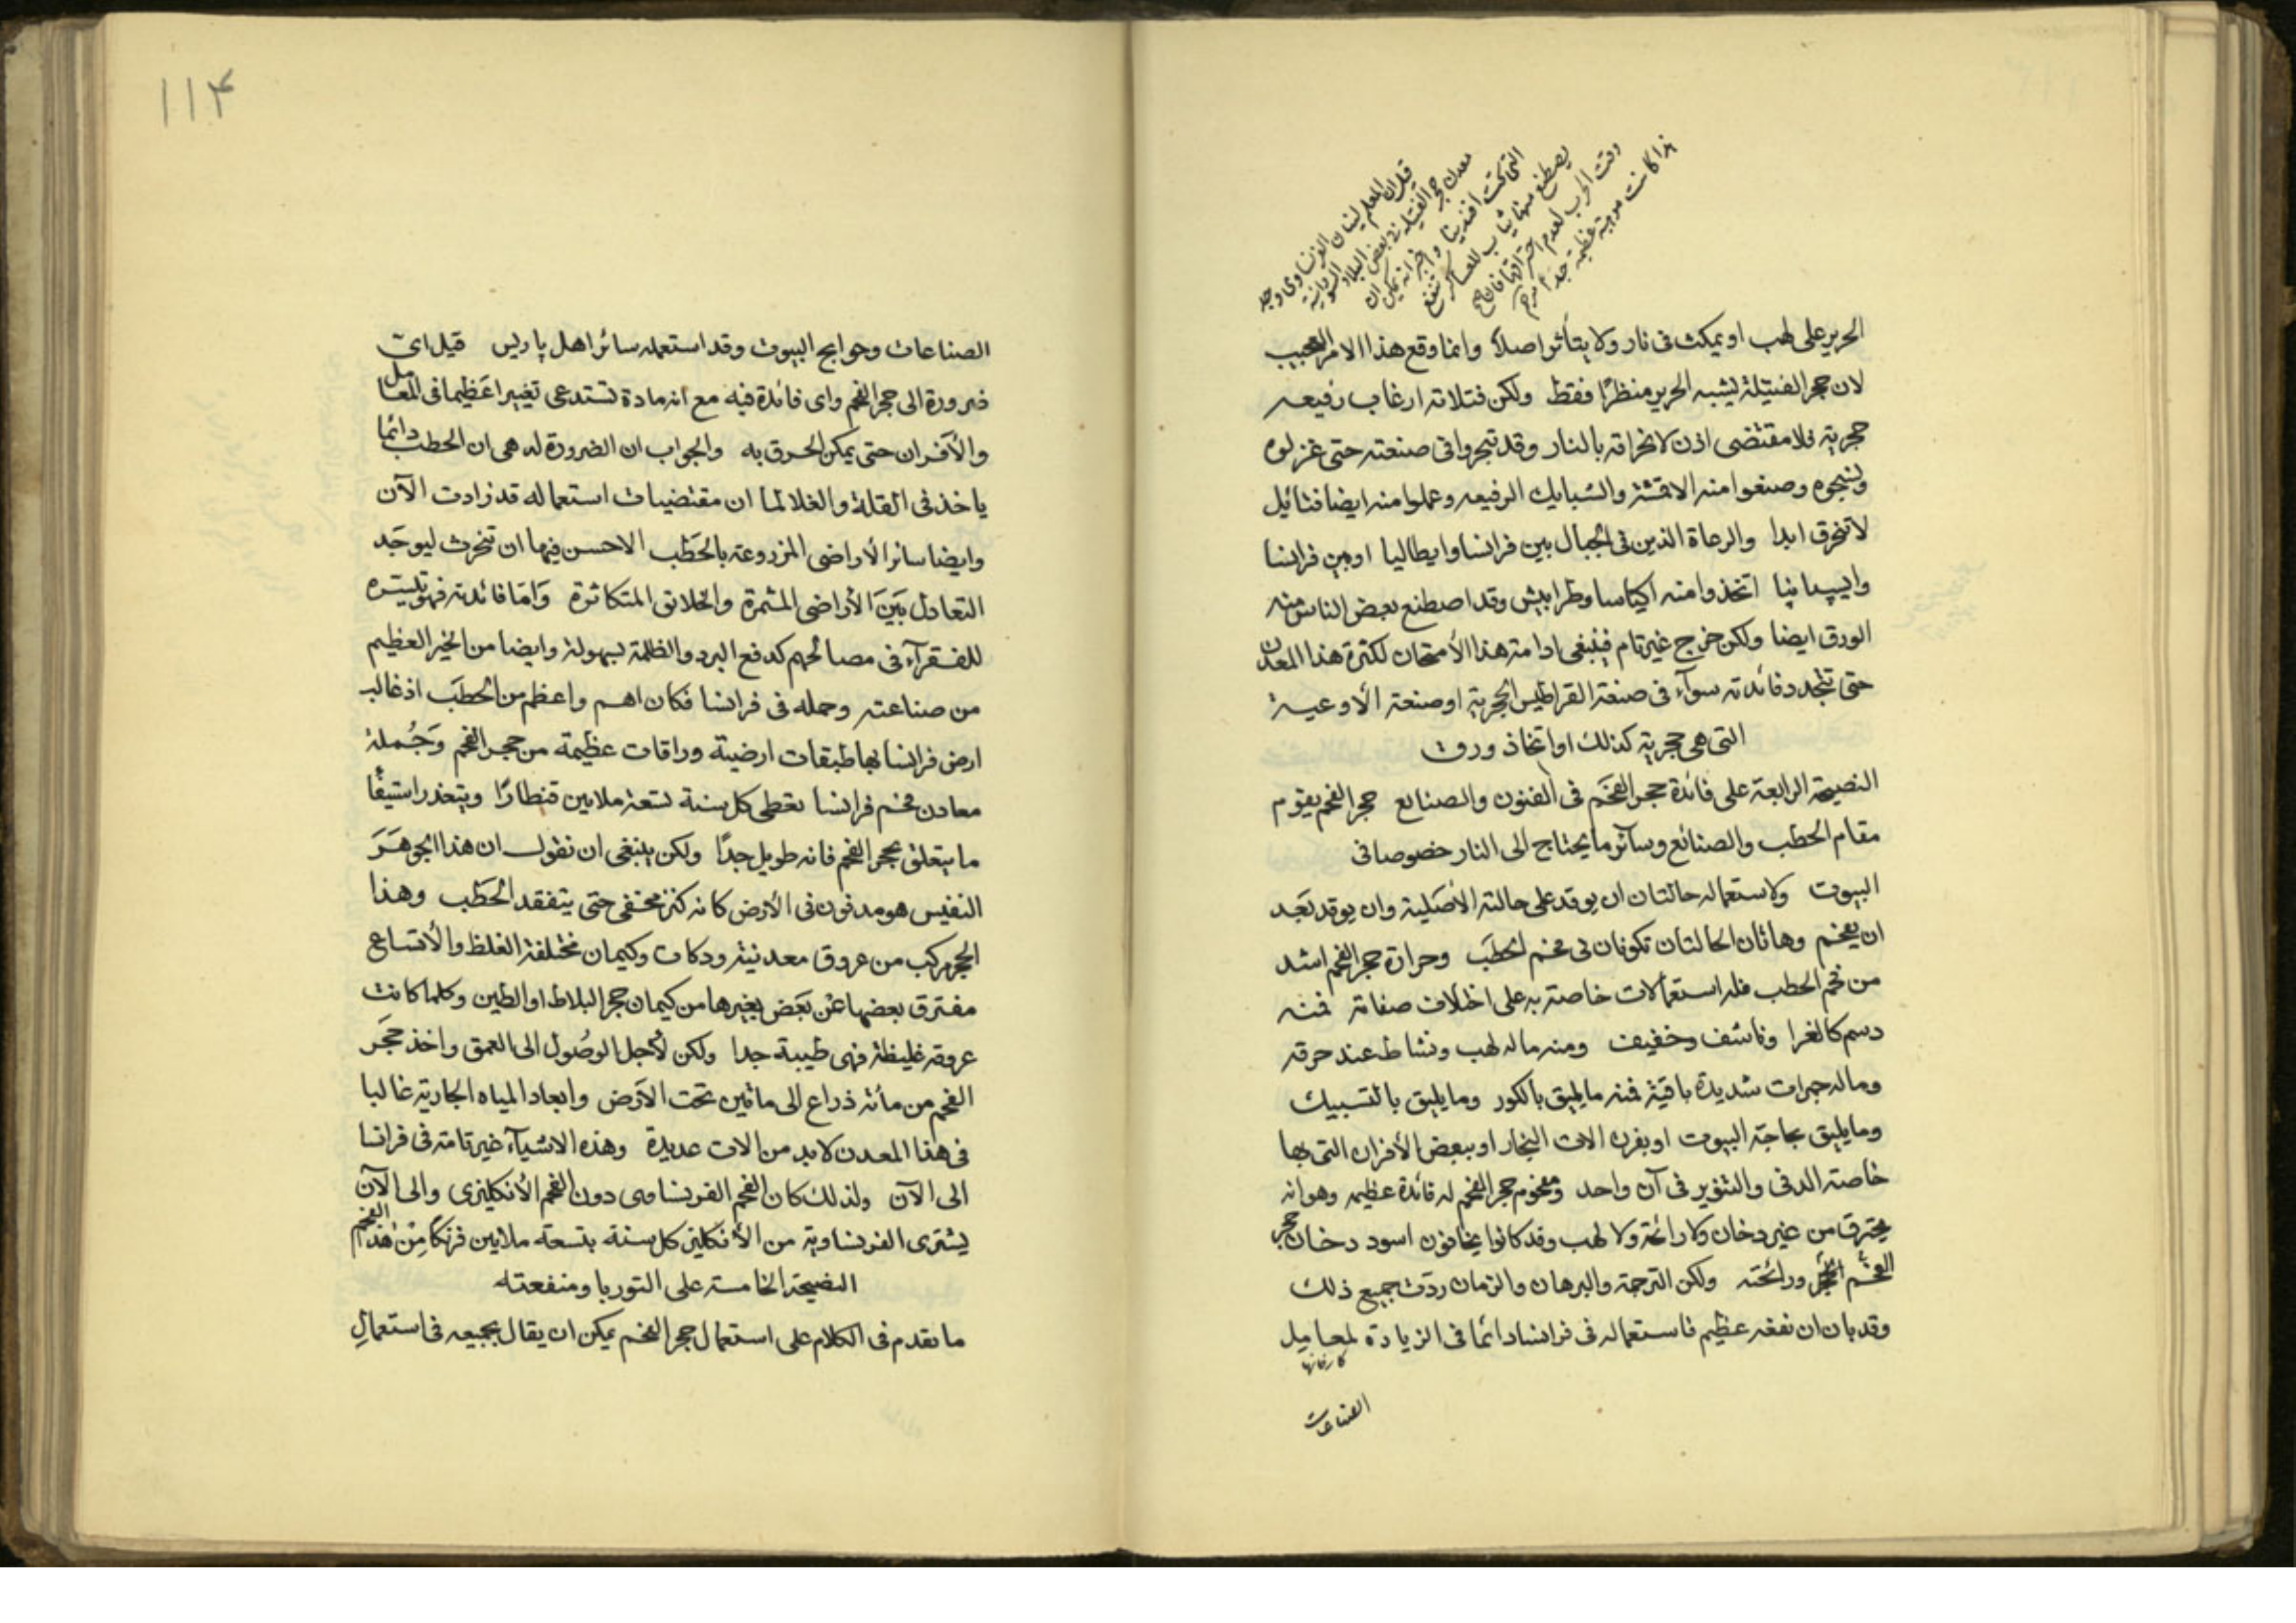 قيل ان المعلم لينان الفرنساوى وجد
معدن حجر الفتيلة فى بعض البلاد السودانية
التى تحت افندينا واخبر انه يمكن ان
يصطنع منها ثياب للعساكر تنفع
وقت الحرب لعدم احتراقها فان صح
هذا كانت مزية عظيمة جدا
الحرير على لهب او يمكث فى نار ولا يتأثر اصلاً وانما وقع هذا الامر العجيب
لان حجر الفتيلة يشبه الحرير منظرًا فقط ولكن فتلاته ارغاب رفيعه
حجرية فلا مقتضى اذن لانحراقه بالنار وقد تبحروا فى صنعته حتى غزلوه
ونسجوه وصنعوا منه الاقمشة والشبابيك الرفيعه وعملوا منه ايضا فتائيل
لا تنحرق ابدا والرعاة الذين فى الجبال بين فرانسا وايطاليا او بين فرانسا
وايسپانيا اتخذوا منه اكياسا وطرابيش وقد اصطنع بعض الناس منه
الورق ايضا ولكن خرج غير تام فينبغى ادامة هذا الأمتحان لكثرة هذا المعدن
حتى تتجدد فائدته سوآء فى صنعة القراطيس الحجرية او صنعة الأوعية
التى هى حجرية كذلك او اتخاذ ورق
النصيحة الرابعة على فائدة حجر الفحَم فى الفنون والصنايع حجر الفحم يقوم
مقام الحطب والصنائع وسآئر ما يحتاج الى النار خصوصا فى
البيوت ولاستعماله حالتان ان يوقد على حالته الأصَلية وان يوقد بَعد
ان يفحم وهاتان الحالتان تكونان فى فحم الحطَب وحرارة حجر الفحم اشد
من فحم الحطب فله استعمالات خاصة به على اختلاف صفاته فمنه
دسم كالغرا وناشف وخفيف ومنه ماله لهب ونشاط عند حرقه
وماله جمرات شديدة باقية فمنه ما يليق بالكور وما يليق بالتسبيك
وما يليق بحاجة البيوت او بفرن الات البخار او ببعض الأفران التى بها
خاصته الدفى والتنوير فى آن واحد ومفحوم حجر الفحم له فائدة عظيمه وهو انه
يحترق من غير دخان ولا رائحة ولا لهب وقد كانوا يخافون اسود دخان حجر
الفحم ورائحته ولكن الترجمة والبرهان والزمان ردّت جميع ذلك
وقد بان ان نفعه عظيم فاستعماله فى فرانسا دائما فى الزيادة لمعاميل
كارخانها
الصناعات
١١٤
الصناعات وحوايج البيوت وقد استعمله سائر اهل پاريس قيل اىّ
ضرورة الى حجر الفحم واى فائدة فيه مع انه مادة تستدعى تغييرا عَظيما فى المعامل
والأفران حتى يمكن الحرق به والجواب ان الضرورة له هى ان الحطب دائما
ياخذ فى القلة والغلا لما ان مقتضيات استعماله قد زادت الآن
وايضا سائر الأراضى المزروعة بالحَطب الاحسن فيها ان تحرث ليوجَد
التعادل بَينَ الأراضى المثمرة والخلائق المتكاثرة وَامّا فائدته فهو تيسّره
للفقرآء فى مصالحهم كدفع البرد والظلمة بسهولة وايضا من الخير العظيم
من صناعته وحمله فى فرانسا فكان اهم واعظم من الحطَب اذ غالب
ارض فرانسا بها طبقات ارضية وراقات عظيمة من حجر الفحم وَجُملة
معادن فحم فرانسا تعطى كل سنة تسعة ملايين قنطارًا ويتعذر استيفًا
ما يتعلق بحجر الفحم فانه طويل جدًا ولكن ينبغى ان نقول ان هذا الجوهَرَ
النفيس هو مدفون فى الأرض كانه كنز مخفى حتى يتفقد الحَطب وهذا
الحجر مركب من عروق معدنية ودكات وكيمان مختلفة الغلظ والأتساع
مفترق بعضها عَن بَعض بغيرها من كيمان حجر البلاط او الطين وكلما كانت
عروقه غليظة فهى طيبة جدا ولكن لأجل الوصُول الى العمق واخذ حجَر
الفحم من مائة ذراع الى مائتين تحت الاَرض وابعاد المياه الجارية غالبا
فى هذا المعدن لابد من الات عديدة وهذه الاشيآء غير تامة فى فرانسا
الى الآن ولذلك كان الفحم الفرنساوى دون الفحم الأنكليزى والى الآن
يشترى الفرنساوية من الأنكليز كل سنة بتسعة ملايين فرنكًا مِنْ هَذا الفحم
النصيحة الخامسة على التوربا ومنفعته
ما تقدم فى الكلام على استعمال حجر الفحم يمكن ان يقال بجميعه فى استعمالِ